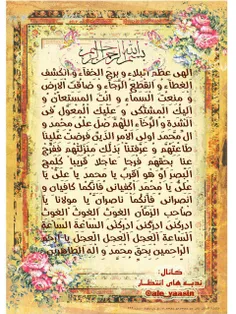 بسم الله الرحمن الرحیم
الهی عظم البلاء و برح الخفاء و انکشف
الغطاء و انقطع الرجاء و ضاقت الارض
و منعت السماء و انت المستعان و
الیک المشتکی و علیک المعول فی
الشدة و الرخاء اللهم صل علی محمد و
آل محمد اولی الامر الذین فرضت علینا
طاعتهم و عرفتنا بذلک منزلتهم ففرج
عنا بحقهم فرجا عاجلا قریبا کلمح
البصر او هو اقرب یا محمد یا علی یا
علی یا محمد اکفیانی فانکما کافیان و
انصرانی فانکما ناصران یا مولانا یا
صاحب الزمان الغوث الغوث الغوث
ادرکنی ادرکنی ادرکنی الساعة الساعة
الساعة العجل العجل العجل یا ارحم
الراحمین بحق محمد و آله الطاهرین
کانال:
ندبه های انتظار
@ale_yaasin